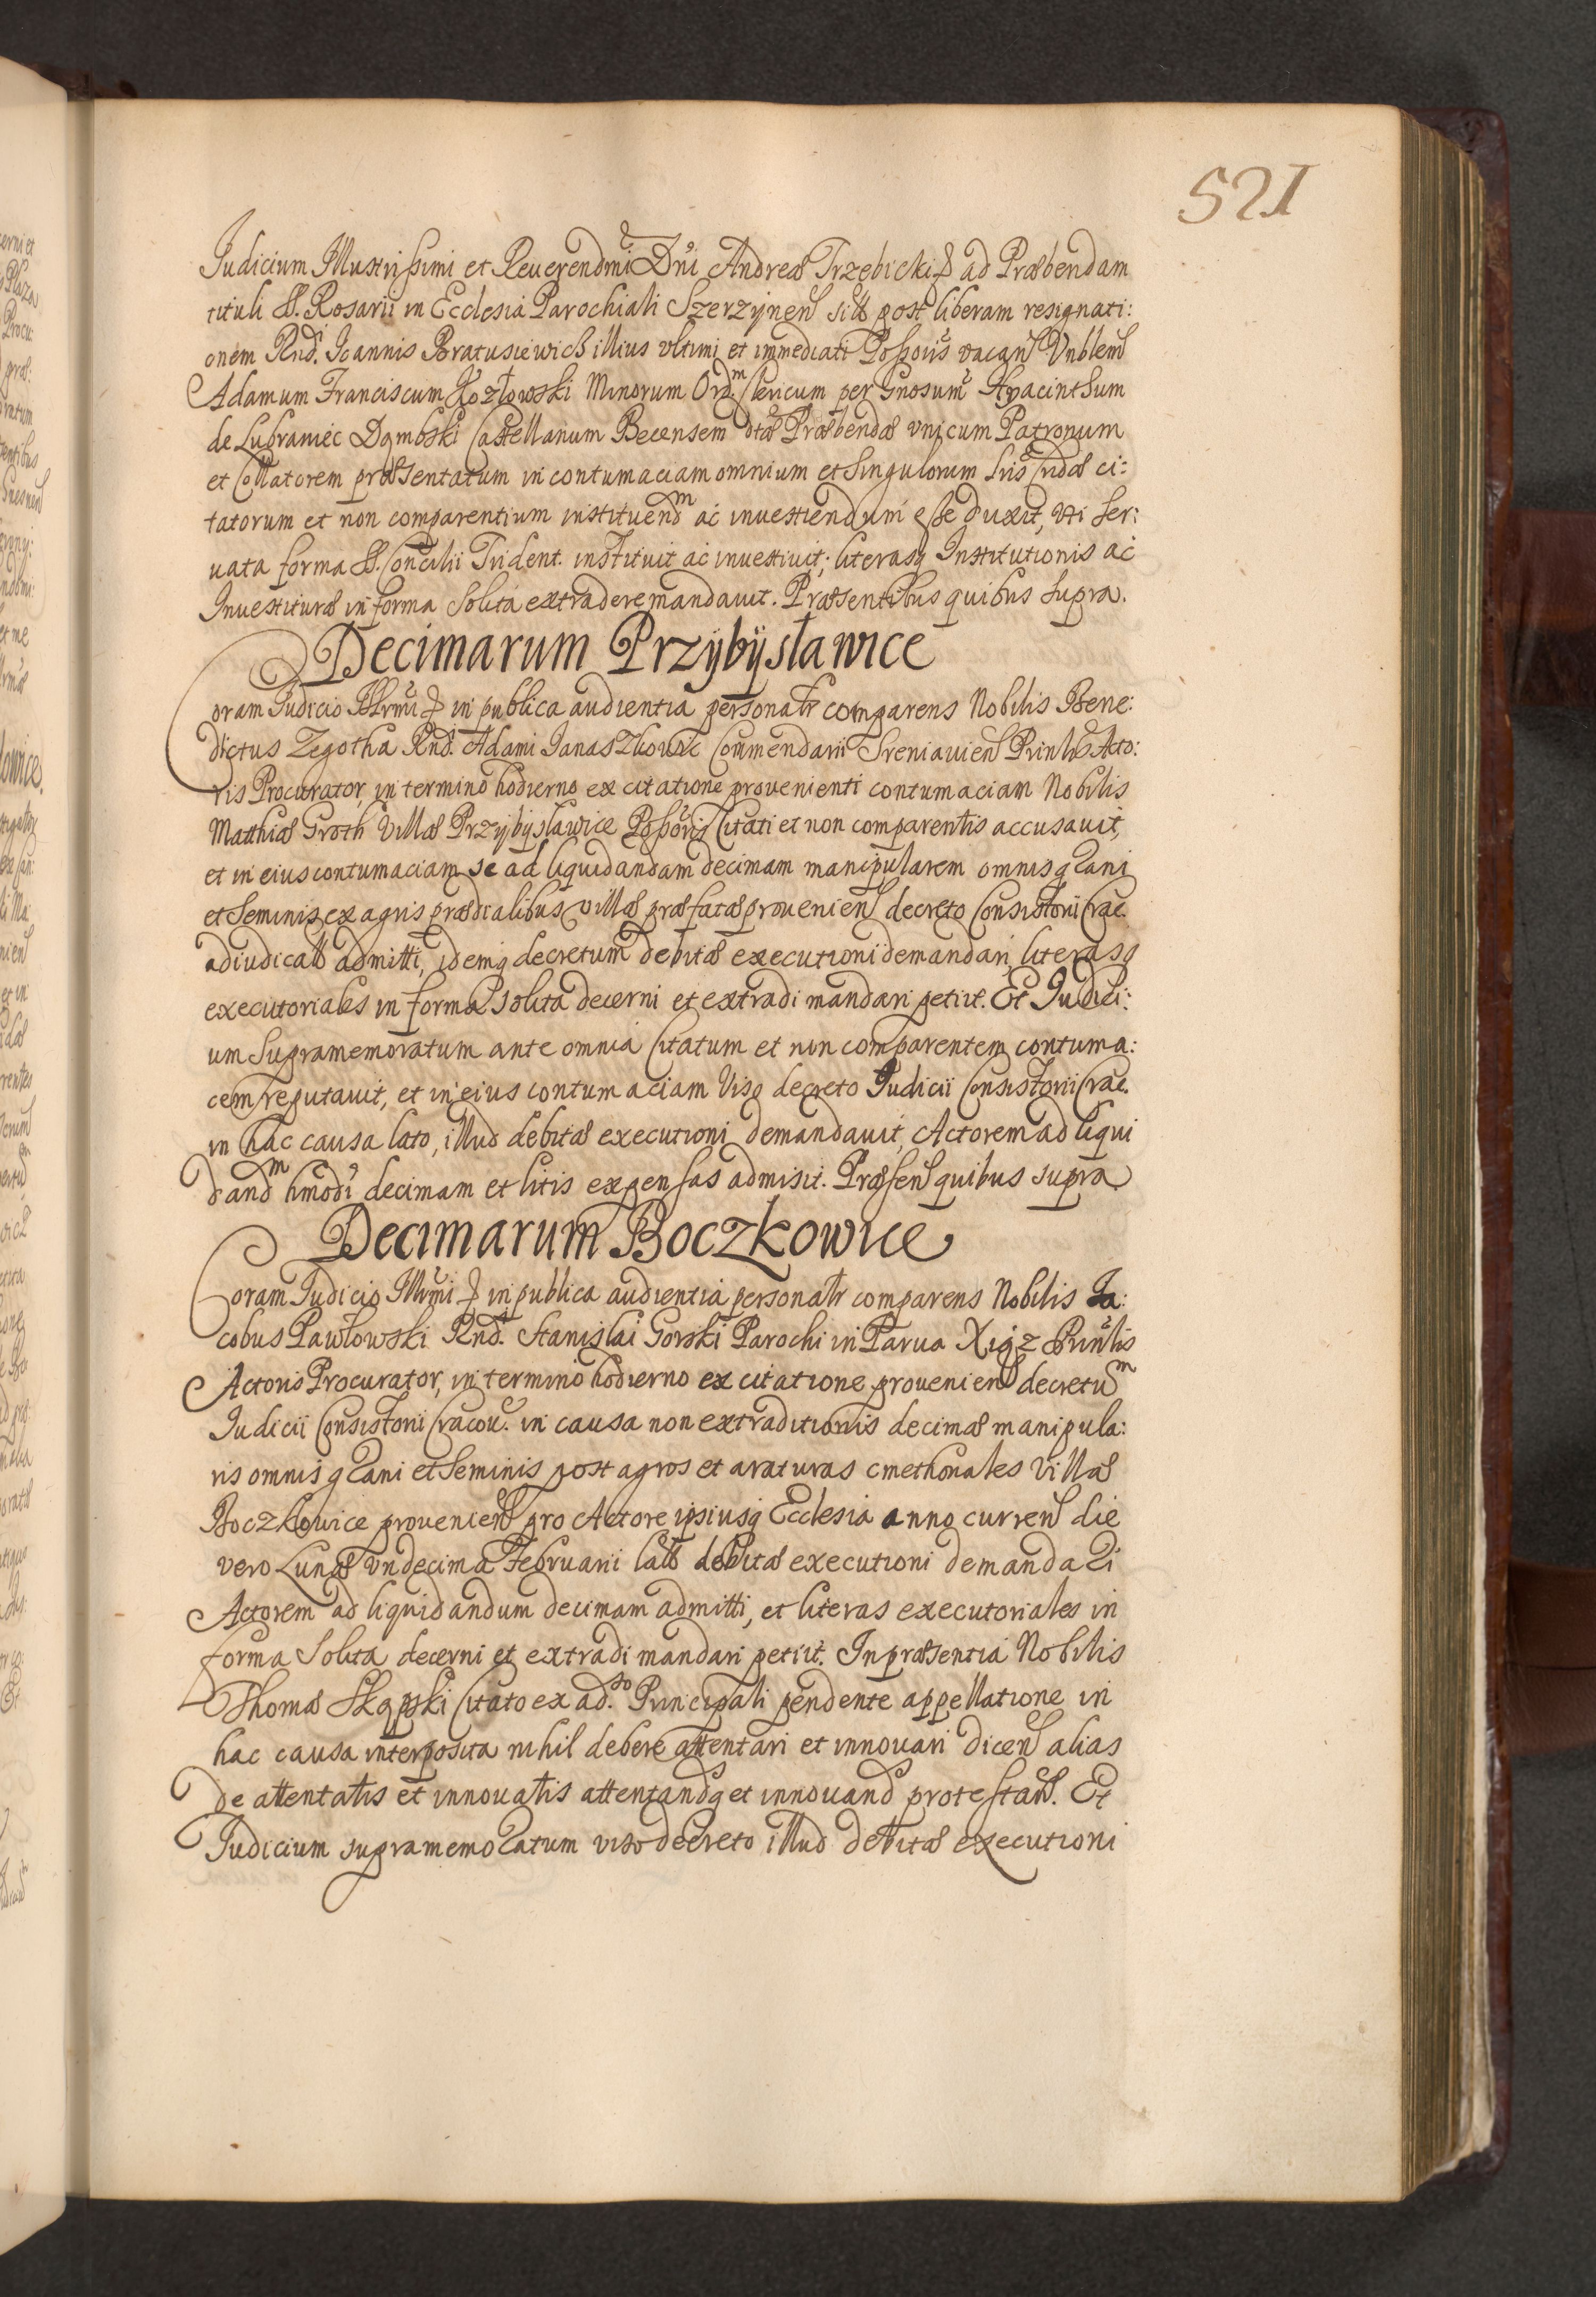 521
Judicium Illustrissimi et Reuerendmi Dni Andreæ Trzebicki ad Præbendam
tituli SS. Rosarii in Ecclesia Parochiali Szerzÿnen sitã post liberam resignati:
onem Rndi Joannis Bratusiewich illius vltimi et immediati Possoris vacan Vnblem
Adamum Franciscum Kozłowski Minorum Ordm Clericum per Gnosum Hyacinthum
de Lubraniec Dąmbski Castellanum Becensem dtæ Præbendæ vnicum Patronum
et Collatorem præsentatum in contumaciam omnium et singulorum sua ci:
tatorum et non comparentium instituendm ac inuestiendum esse duxit, vti ser:
uata forma SS. Concilii Trident. instituit ac inuestiuit; literasq Institutionis ac
Inuestituræ in forma solita extradere mandauit. Præsentibus quibus supra.
Decimarum Przÿbÿsławice
Coram Judicio Illrmi in publica audientia personalr comparens Nobilis Bene:
dictus Zegotha Rndi Adami Janaszkowic Commendarii Sreniauien Prinlis Acto:
ris Procurator, in termino hodierno ex citatione prouenienti contumaciam Nobilis
Matthiæ Groth Villæ Przÿbÿsławice Possoris Citati et non comparentis accusauit,
et in eius contumaciam se ad liquidandam decimam manipularem omnisq Grani
et Seminis ex agris prædialibus villæ præfatæ prouenien decreto Consistorii Crac.
adiudicatã admitti, idemq decretum debitæ executioni demandari, literasq
executoriales in forma solita decerni et extradi mandari petiit. Et Judici:
um supramemoratum ante omnia Citatum et non comparentem contuma:
cem reputauit, et in eius contumaciam Viso decreto Judicii Consistorii Crac.
in hac causa lato, illud debitæ executioni demandauit, Actorem ad liqui
dandm hmodi decimam et litis expensas admisit. Præsen quibus supra
Decimarum Boczkowice
Coram Judicio Illrmi in publica audientia personalr comparens Nobilis Ja:
cobus Pawłowski Rndi Stanislai Gorski Parochi in Parua Xiąz Prinlis
Actoris Procurator, in termino hodierno ex citatione prouenien decretum
Judicii Consistorii Cracou. in causa non extraditionis decimæ manipula:
ris omnisq Grani et Seminis post agros et araturas cmethonales Villæ
Boczkowice prouenien pro Actore ipsiusq Ecclesia anno curren die
vero Lunæ vndecima Februarii latã debitæ executioni demandari
Actorem ad liquidandum decimam admitti, et literas executoriales in
forma solita decerni et extradi mandari petiit. In præsentia Nobilis
Thomæ Skąpski Citato ex aduso Principali pendente appellatione in
hac causa interposita nihil debere attentari et innouari dicen alias
de attentatis et innouatis attentandq et innouand protestan. Et
Judicium supramemoratum viso decreto illud debitæ executioni